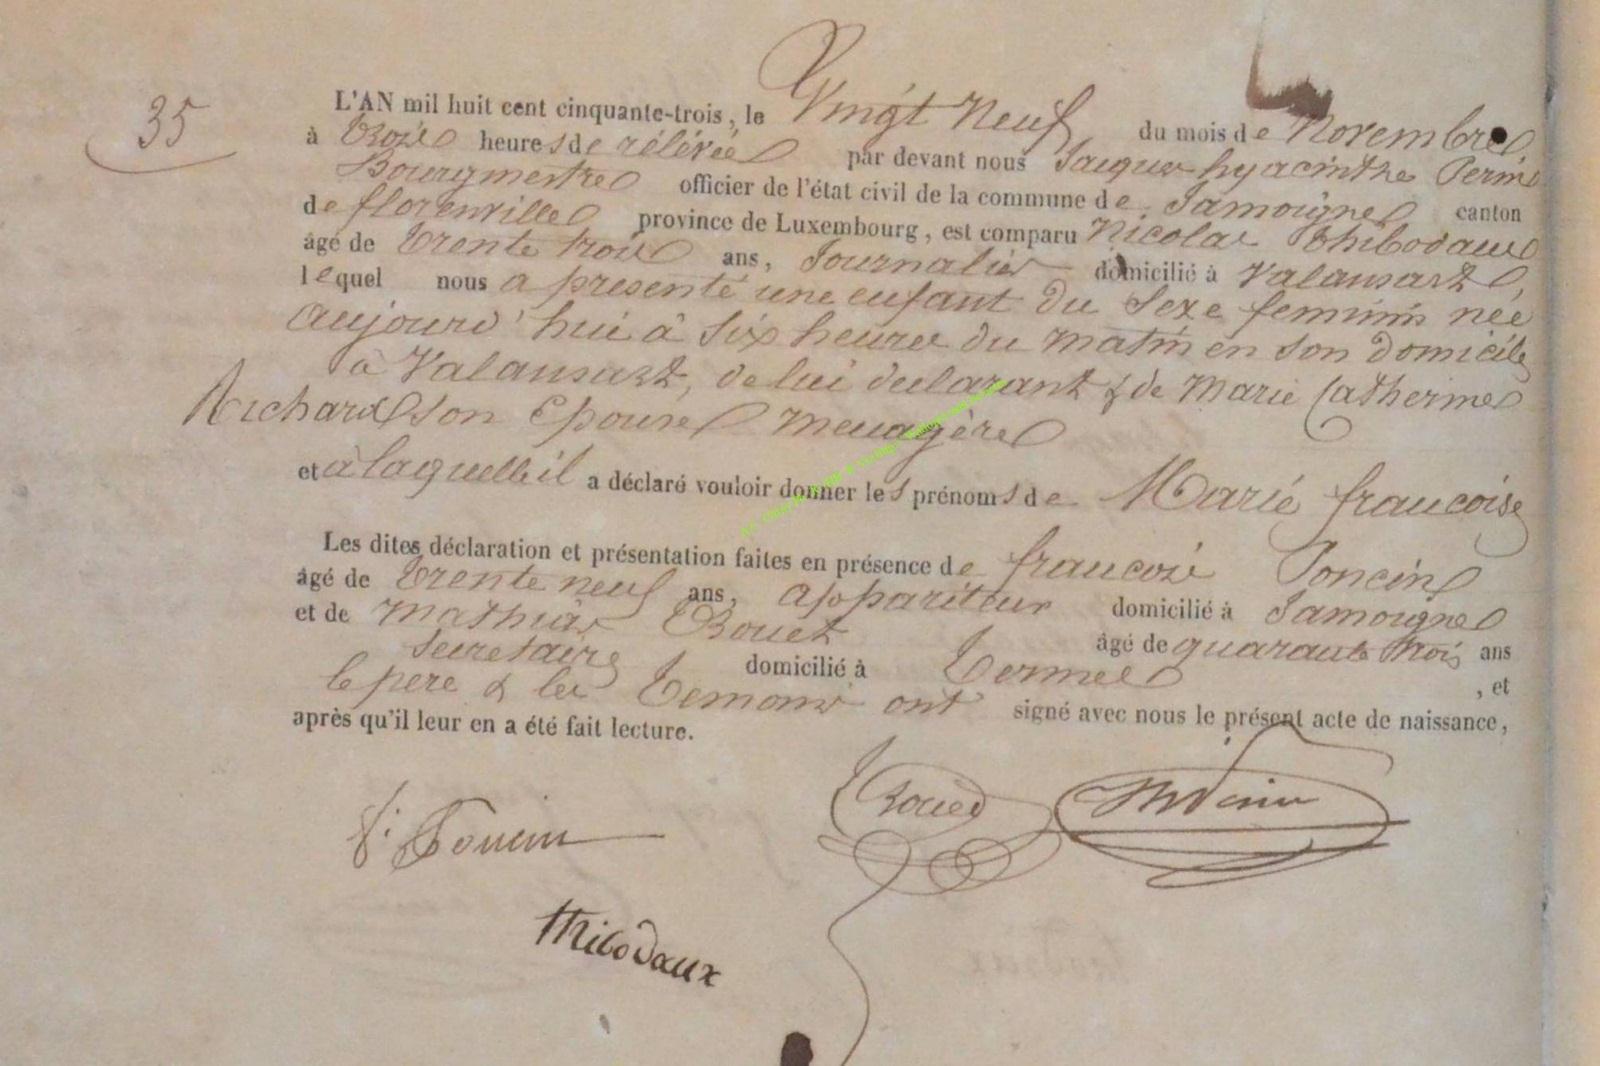 35
L'AN mil huit cent cinquante-trois, le Vingt Neuf du mois de Novembre
à trois heures de rélévée par devant nous Jacques hyacinthe Perin
Bourgmestre officier de l'état civil de la commune de Jamoigne canton
de florenville province de Luxembourg, est comparu Nicolas thibodaux
âgé de trente trois ans, Journalier domicilié à Valansart,
lequel nous a présenté une enfant du Sexe feminin née
aujourd'hui à six heures du matin en son domicile
à Valansart, de lui declarant & de Marie Catherine
Richard son Epouse menagère
et à laquelle il a déclaré vouloir donner les prénoms de Marie francoise
Les dites déclaration et présentation faites en présence de francois Poncin
âgé de trente neuf ans, appariteur domicilié à Jamoigne
et de Mathias Rouet âgé de quarante trois ans
Secretaire domicilié à termes , et
le pere & les temoins ont signé avec nous le présent acte de naissance,
après qu'il leur en a été fait lecture.
f: Poncin
thibodaux